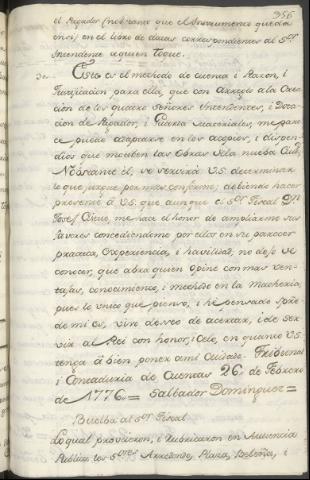 356
el Pagador (no obstante que el Instrumento queda
en si) en el libro de datas correspondientes al Sor
Intendente a quien toque.
Este es el metodo de cuenta i Razon, i
Justificacion para ella, que con Arreglo a la Crea
cion de los quatro Señores Intendentes, i Dota
cion de Pagador, i Guarda Materiales, me pare
ce puede adaptarse en los acopios, i dispen
dios que motiben las Obras de la nueba Ciud.
No obstante él, se servirá V.S. determinar
lo que juzgue por mas conforme; debiendo hacer
presente à V.S. que aunque el Sor Fiscal Dn
Josef Cistue, me hace el honor de ampliarme sus
favores concediendome por ellos en su parecer
practica, Experiencia, i havilidad; no dejo de
conocer, que abrá quien opine con mas ven
tajas, conocimiento, i methodo en la Materia,
pues lo unico que pienso, i he pensado spre
de mi es, vivo deseo de acertar, i de ser
vir al Rei con honor, i Celo, en quanto V.S.
tenga à bien poner a mi Cuidado. Tribunal
i Contaduria de Cuentas 26 de Febrero
de 1776 = Salbador Dominguez =
Buelba al Sor Fiscal
Lo qual proveieron, i rubricaron en Audiencia
Publica los Sores Arredondo, Plaza, Beleña, i